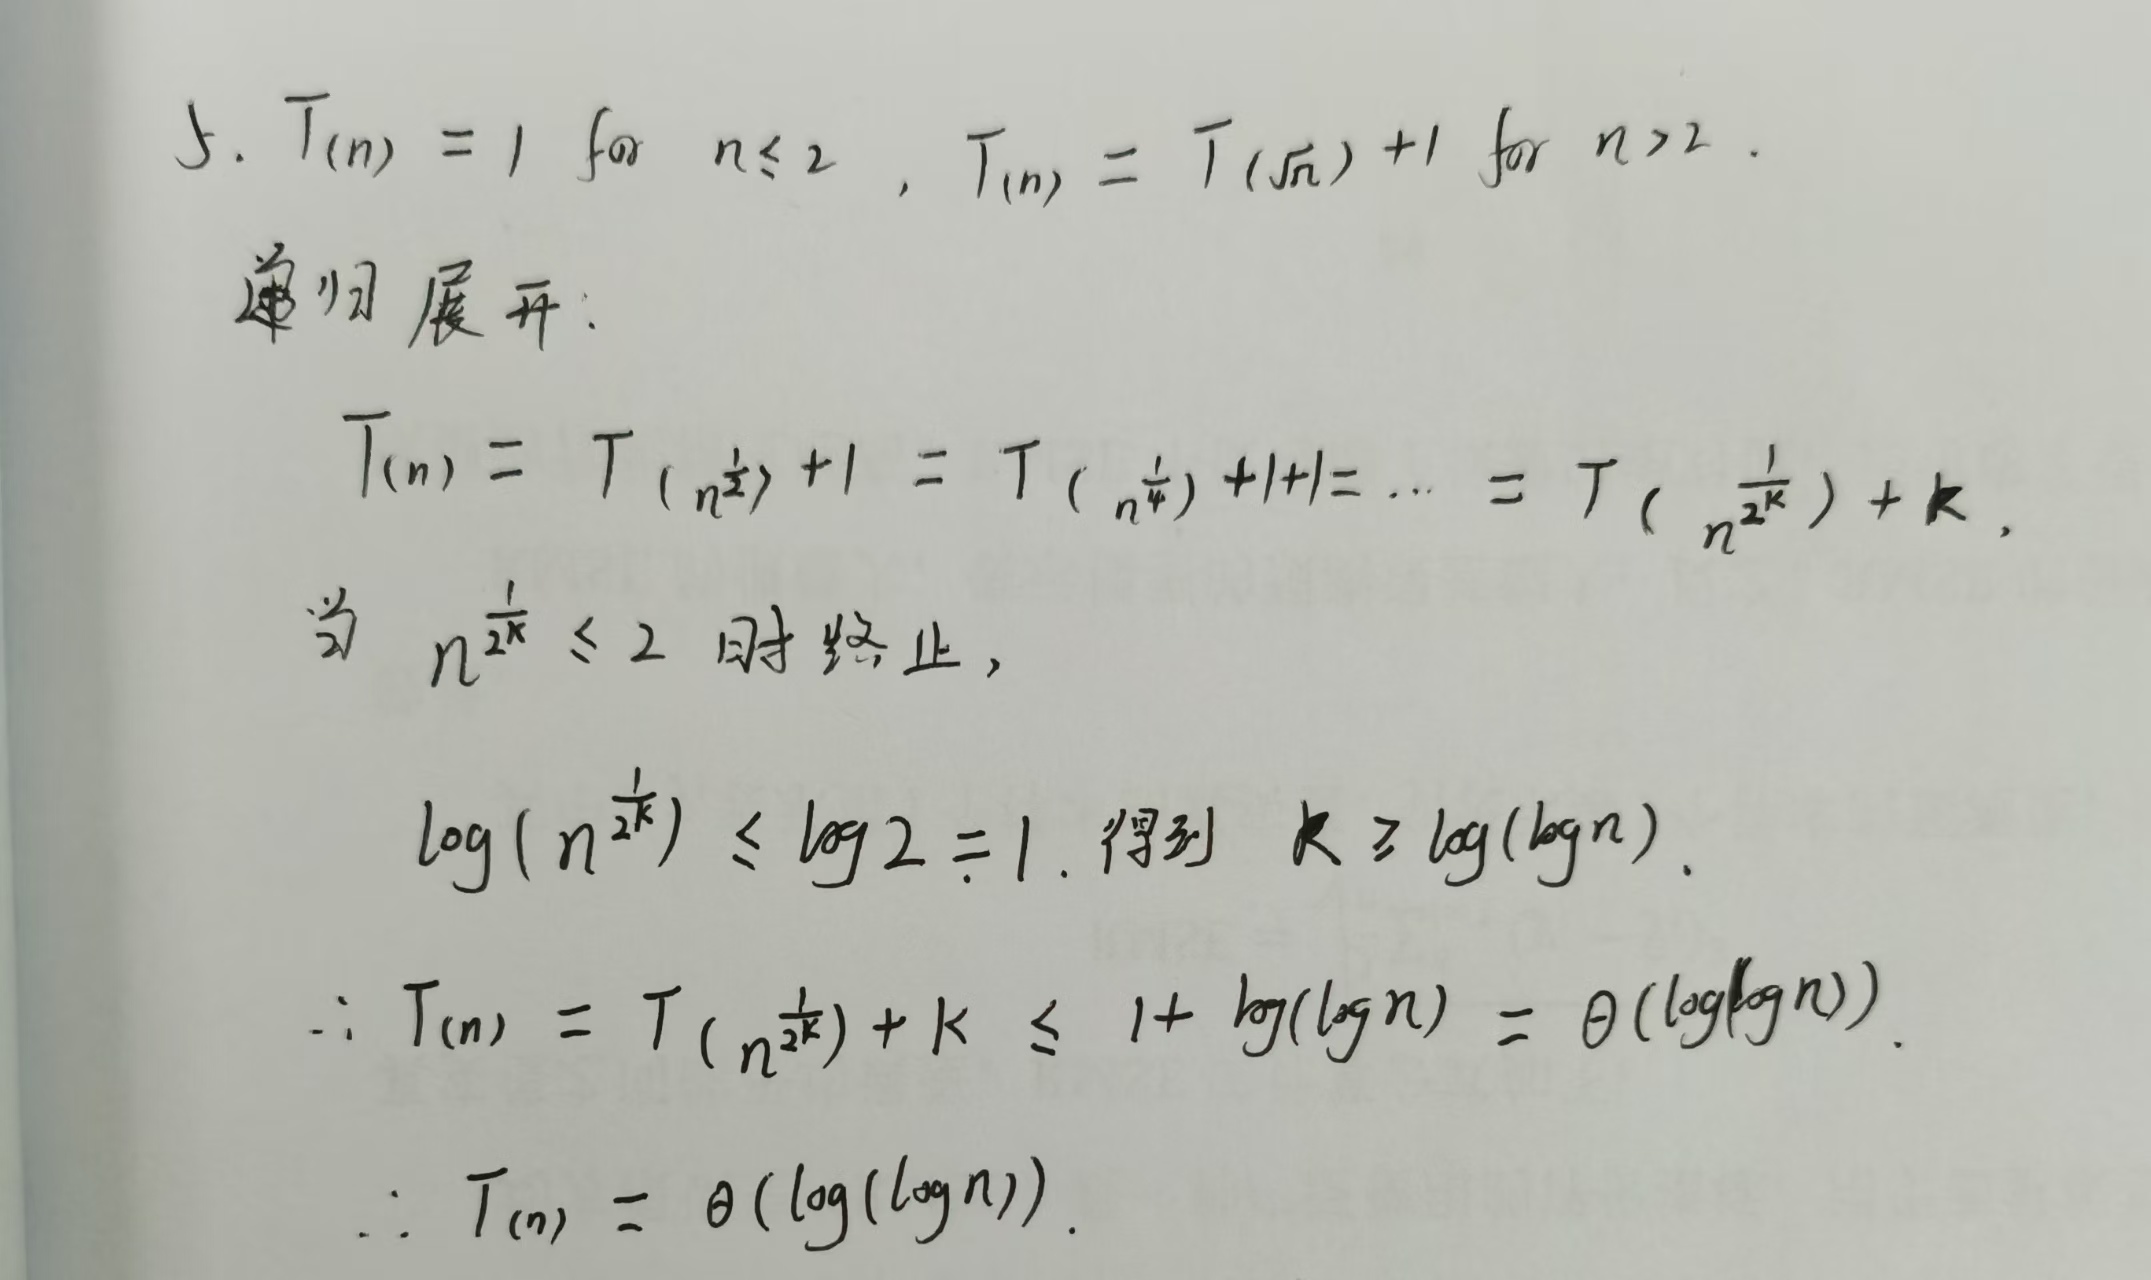 5. T(n) = 1 for n ≤ 2 , T(n) = T(√n) + 1 for n > 2 .
递归展开:
T(n) = T(n^{\frac{1}{2}}) + 1 = T(n^{\frac{1}{4}}) + 1 + 1 = ... = T(n^{\frac{1}{2^k}}) + k ,
当 n^{\frac{1}{2^k}} ≤ 2 时终止,
log(n^{\frac{1}{2^k}}) ≤ log 2 = 1 . 得到 k ≥ log(log n) .
∴ T(n) = T(n^{\frac{1}{2^k}}) + k ≤ 1 + log(log n) = θ(log(log n)) .
∴ T(n) = θ(log(log n)) .